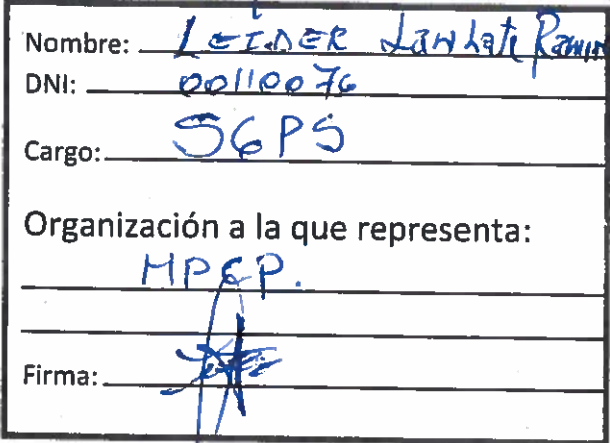 Nombre: LEIDER
DNI: 00110076
Cargo: SGPS
Organización a la que representa:
MPCP.
Firma: